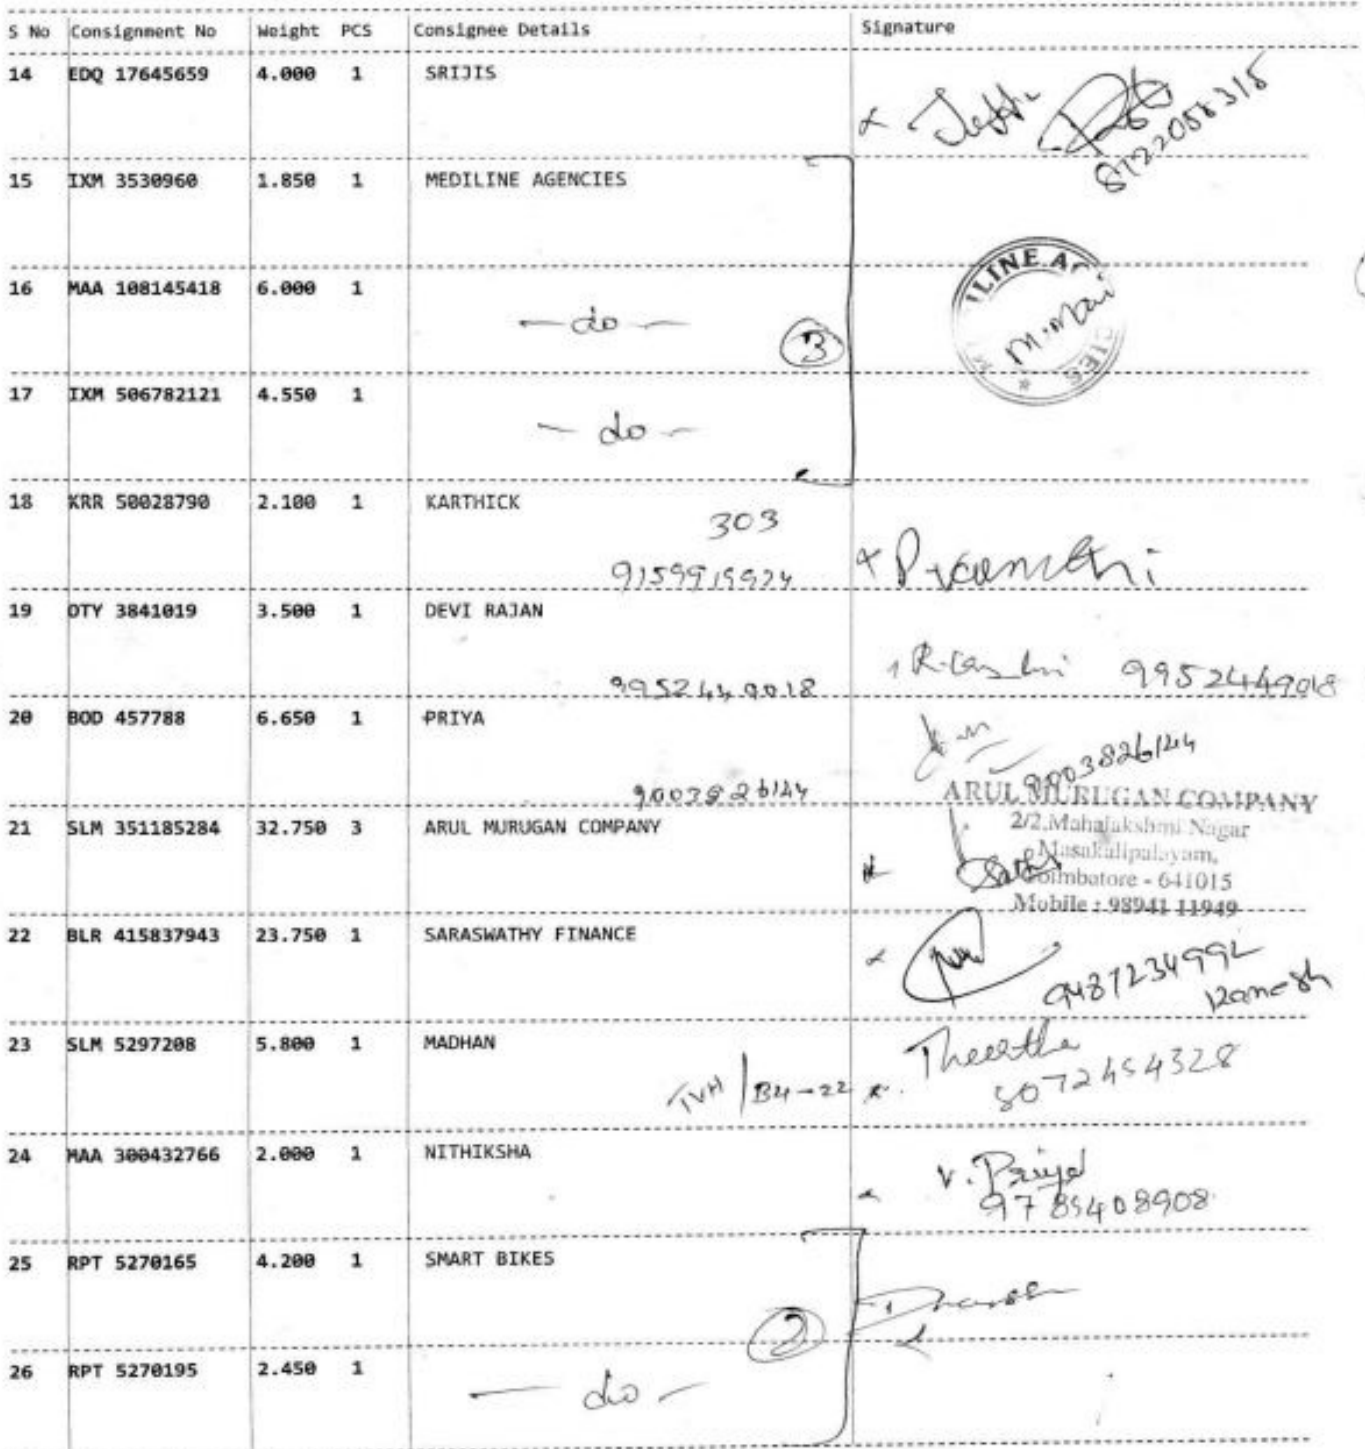 S No Consignment No Weight PCS Consignee Details Signature
14 EDQ 17645659 4.000 1 SRIJIS
8122058315
15 IXM 3530960 1.850 1 MEDILINE AGENCIES
LINE A
M.Mani
CIES
16 MAA 108145418 6.000 1
— do —
3
17 IXM 506782121 4.550 1
— do —
18 KRR 50028790 2.100 1 KARTHICK
303
9159919924
19 OTY 3841019 3.500 1 DEVI RAJAN
9952449018 9952449018
20 BOD 457788 6.650 1 PRIYA
9003826144 9003826144
ARUL MURUGAN COMPANY
21 SLM 351185284 32.750 3 ARUL MURUGAN COMPANY
2/2,Mahalakshmi Nagar
Masakalipalayam,
Coimbatore - 641015
Mobile : 98941 11949
22 BLR 415837943 23.750 1 SARASWATHY FINANCE
9487234992
Ramesh
23 SLM 5297208 5.800 1 MADHAN
TVH / B4-22 Theertha
8072454328
24 MAA 300432766 2.000 1 NITHIKSHA
V. Priya
9785408908
25 RPT 5270165 4.200 1 SMART BIKES
2
26 RPT 5270195 2.450 1
— do —